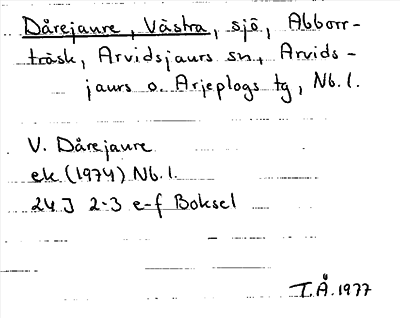 Dårejaure, Västra, sjö, Abborr-
träsk, Arvidsjaurs sn., Arvids-
jaurs o. Arjeplogs tg, Nb. l.
V. Dårejaure
ek (1974) Nb. l.
24 J 2-3 e-f Boksel
T.Å. 1977